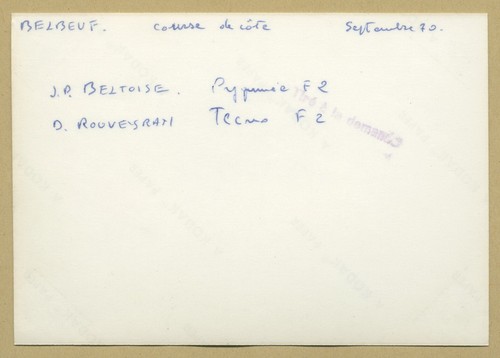 BELBEUF. course de côte Septembre 70.
J.P. BELTOISE. Pygmée F2
D. ROUVEYRAN Tecno F2